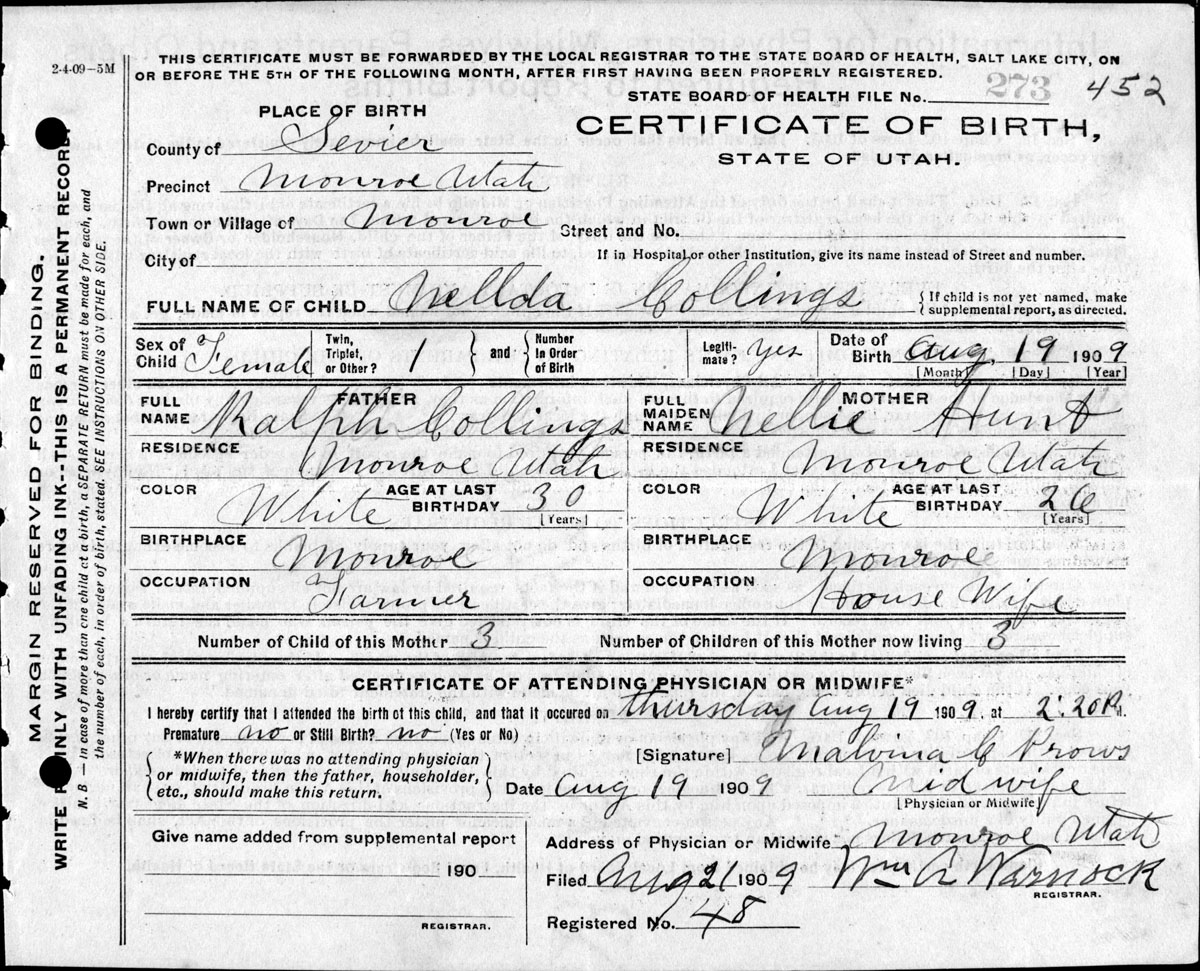 2-4-09-5M
THIS CERTIFICATE MUST BE FORWARDED BY THE LOCAL REGISTRAR TO THE STATE BOARD OF HEALTH, SALT LAKE CITY, ON
OR BEFORE THE 5TH OF THE FOLLOWING MONTH, AFTER FIRST HAVING BEEN PROPERLY REGISTERED.
STATE BOARD OF HEALTH FILE No. 273 452
PLACE OF BIRTH
CERTIFICATE OF BIRTH,
STATE OF UTAH.
County of Sevier
Precinct Monroe Utah
Town or Village of Monroe Street and No.
City of If in Hospital or other Institution, give its name instead of Street and number.
FULL NAME OF CHILD Nellda Collings { If child is not yet named, make supplemental report, as directed.
Sex of Child Female Twin, Triplet, or Other? 1 } and { Number In Order of Birth Legiti-mate? yes Date of Birth Aug 19 1909
[Month] [Day] [Year]
FATHER MOTHER
FULL NAME Ralph Collings FULL MAIDEN NAME Nellie Hunt
RESIDENCE Monroe Utah RESIDENCE Monroe Utah
COLOR White AGE AT LAST BIRTHDAY 30 [Years] COLOR White AGE AT LAST BIRTHDAY 26 [Years]
BIRTHPLACE Monroe BIRTHPLACE Monroe
OCCUPATION Farmer OCCUPATION House Wife
Number of Child of this Mother 3 Number of Children of this Mother now living 3
CERTIFICATE OF ATTENDING PHYSICIAN OR MIDWIFE*
I hereby certify that I attended the birth of this child, and that it occured on thursday Aug 19 1909. at 2:20 P.M.
Premature no or Still Birth? no (Yes or No)
*When there was no attending physician or midwife, then the father, householder, etc., should make this return.
[Signature] Malvina C Prows
Date Aug 19 1909 Midwife
[Physician or Midwife]
Give name added from supplemental report
190
REGISTRAR.
Address of Physician or Midwife Monroe Utah
Filed Aug 21 1909 Wm A Warnock
REGISTRAR.
Registered No. 48
MARGIN RESERVED FOR BINDING.
WRITE PLAINLY WITH UNFADING INK--THIS IS A PERMANENT RECORD.
N. B.—In case of more than one child at a birth, a SEPARATE RETURN must be made for each, and
the number of each, in order of birth, stated. SEE INSTRUCTIONS ON OTHER SIDE.